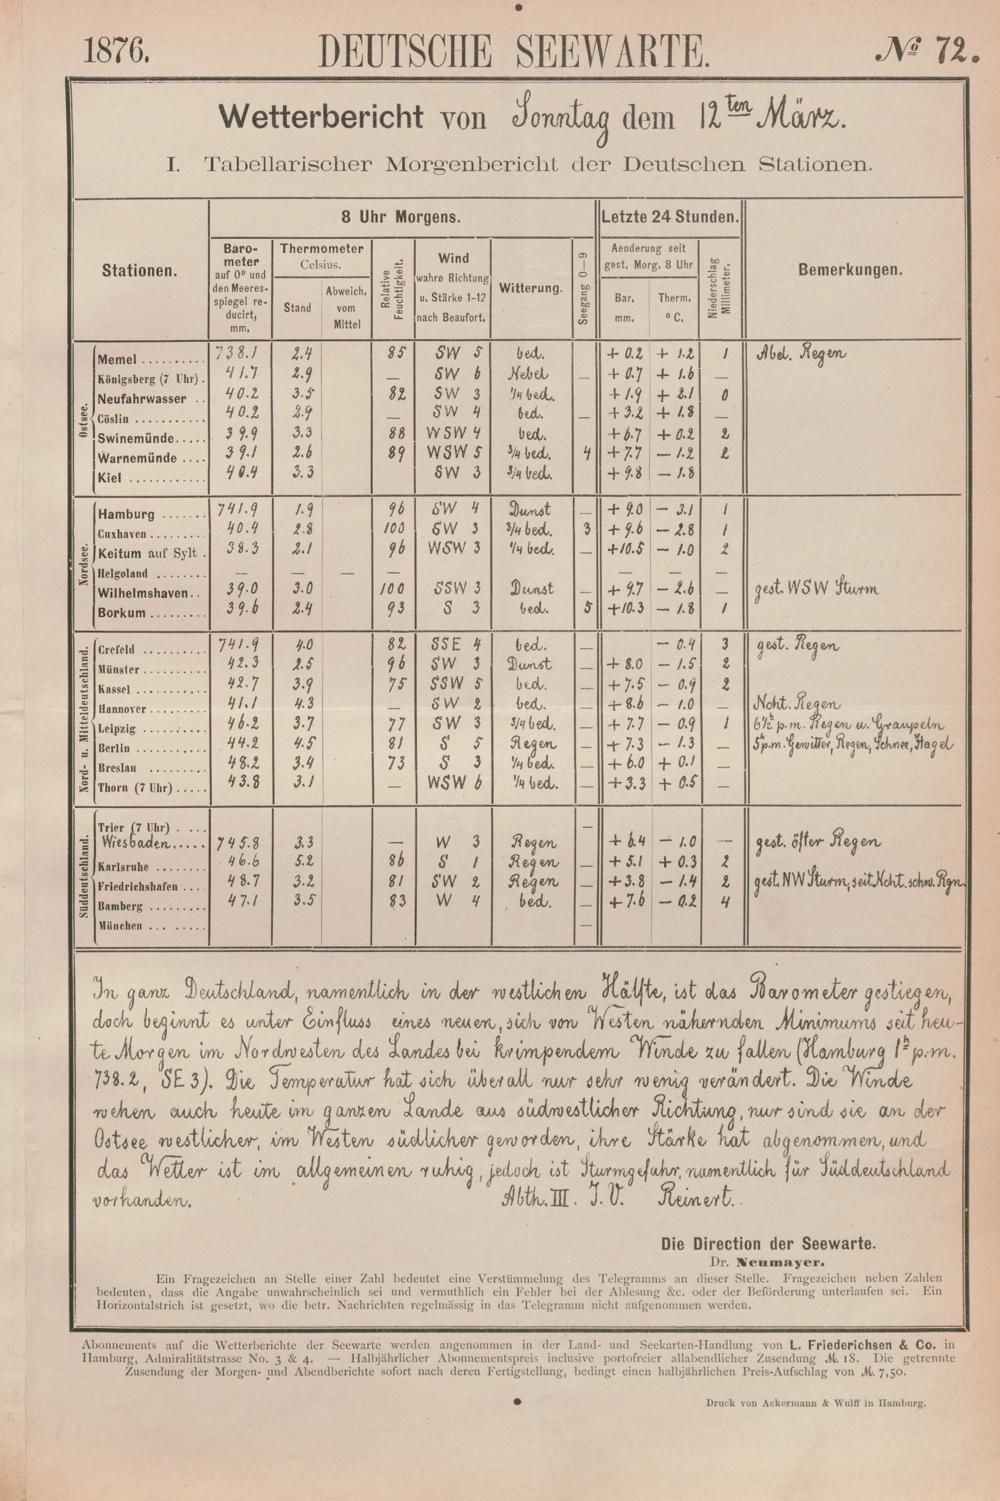 1876. DEUTSCHE SEEWARTE. № 72.
Wetterbericht von Sonntag dem 12ten März.
I. Tabellarischer Morgenbericht der Deutschen Stationen.
Stationen. 8 Uhr Morgens. Letzte 24 Stunden. Bemerkungen.
Barometer auf 0º und den Meeresspiegel reducirt, mm.
Thermometer Celsius. Stand Abweich. vom Mittel
Relative Feuchtigkeit.
Wind wahre Richtung u. Stärke 1-12 nach Beaufort.
Witterung.
Seegang 0—9
Aenderung seit gest. Morg. 8 Uhr Bar. mm. Therm. º C.
Niederschlag Millimeter.
Ostsee.
Memel 738.1 2.4 85 SW 5 bed. + 0.2 + 1.2 1 Abd. Regen
Königsberg (7 Uhr) . 41.7 2.9 — SW 6 Nebel — + 0.7 + 1.6 —
Neufahrwasser 40.2 3.5 82 SW 3 ¼ bed. + 1.9 + 2.1 0
Cöslin 40.2 2.9 — SW 4 bed. — + 3.2 + 1.8 —
Swinemünde 39.9 3.3 88 WSW 4 bed. + 6.7 + 0.2 2
Warnemünde 39.1 2.6 89 WSW 5 ¾ bed. 4 + 7.7 — 1.2 2
Kiel 40.4 3.3 SW 3 ¾ bed. + 9.8 — 1.8
Nordsee.
Hamburg 741.9 1.9 96 SW 4 Dunst — + 9.0 — 3.1 1
Cuxhaven 40.4 2.8 100 SW 3 ¾ bed. 3 + 9.6 — 2.8 1
Keitum auf Sylt . 38.3 2.1 96 WSW 3 ¼ bed. — +10.5 — 1.0 2
Helgoland — — — — — —
Wilhelmshaven 39.0 3.0 100 SSW 3 Dunst — + 9.7 — 2.6 — gest. WSW Sturm
Borkum 39.6 2.4 93 S 3 bed. 5 +10.3 — 1.8 1
Nord- u. Mitteldeutschland.
Crefeld 741.9 4.0 82 SSE 4 bed. — — 0.4 3 gest. Regen
Münster 42.3 2.5 96 SW 3 Dunst — + 8.0 — 1.5 2
Kassel 42.7 3.9 75 SSW 5 bed. — + 7.5 — 0.9 2
Hannover 41.1 4.3 — SW 2 bed. — + 8.6 — 1.0 — Ncht. Regen
Leipzig 46.2 3.7 77 SW 3 ¾ bed. — + 7.7 — 0.9 1 6½ h p.m. Regen u. Graupeln
Berlin 44.2 4.5 81 S 5 Regen — + 7.3 — 1.3 — 5h p.m. Gewitter, Regen, Schnee, Hagel
Breslau 48.2 3.4 73 S 3 ¼ bed. — + 6.0 + 0.1 —
Thorn (7 Uhr) 43.8 3.1 — WSW 6 ¼ bed. — + 3.3 + 0.5 —
Süddeutschland.
Trier (7 Uhr) —
Wiesbaden 745.8 3.3 — W 3 Regen + 6.4 — 1.0 — gest. öfter Regen
Karlsruhe 46.6 5.2 86 S 1 Regen — + 5.1 + 0.3 2
Friedrichshafen 48.7 3.2 81 SW 2 Regen — + 3.8 — 1.4 2 gest. NW Sturm, seit Ncht. schw. Rgn.
Bamberg 47.1 3.5 83 W 4 bed. — + 7.6 — 0.2 4
München —
In ganz Deutschland, namentlich in der westlichen Hälfte, ist das Barometer gestiegen,
doch beginnt es unter Einfluss eines neuen, sich von Westen nähernden Minimums seit heu-
te Morgen im Nordwesten des Landes bei krimpendem Winde zu fallen (Hamburg 1h p.m.
738.2, SE 3). Die Temperatur hat sich überall nur sehr wenig verändert. Die Winde
wehen auch heute im ganzen Lande aus südwestlicher Richtung, nur sind sie an der
Ostsee westlicher, im Westen südlicher geworden, ihre Stärke hat abgenommen, und
das Wetter ist im allgemeinen ruhig, jedoch ist Sturmgefahr, namentlich für Süddeutschland
vorhanden. Abth. III. I. V. Reinert.
Die Direction der Seewarte.
Dr. Neumayer.
Ein Fragezeichen an Stelle einer Zahl bedeutet eine Verstümmelung des Telegramms an dieser Stelle. Fragezeichen neben Zahlen
bedeuten, dass die Angabe unwahrscheinlich sei und vermuthlich ein Fehler bei der Ablesung &c. oder der Beförderung unterlaufen sei. Ein
Horizontalstrich ist gesetzt, wo die betr. Nachrichten regelmässig in das Telegramm nicht aufgenommen werden.
Abonnements auf die Wetterberichte der Seewarte werden angenommen in der Land- und Seekarten-Handlung von L. Friederichsen & Co. in
Hamburg, Admiralitätstrasse No. 3 & 4. — Halbjährlicher Abonnementspreis inclusive portofreier allabendlicher Zusendung M. 18. Die getrennte
Zusendung der Morgen- und Abendberichte sofort nach deren Fertigstellung, bedingt einen halbjährlichen Preis-Aufschlag von M. 7,50.
Druck von Ackermann & Wulff in Hamburg.